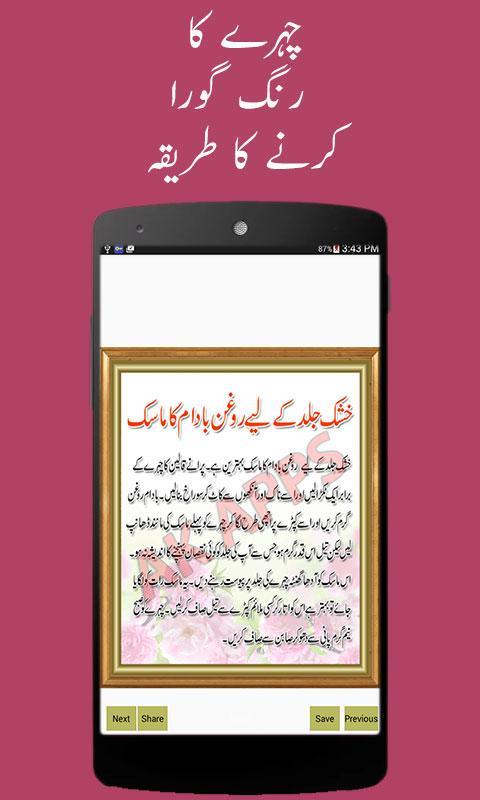 چہرے کا
رنگ گورا
کرنے کا طریقہ
87% 3:43 PM
خشک جلد کے لیے روغن بادام کا ماسک
خشک جلد کے لیے روغن بادام کا ماسک بہترین ہے۔ پرانے قالین کا چہرے کے
برابر ایک ٹکڑا لیں اور اسے ناک اور آنکھوں سے کاٹ کر سوراخ بنالیں۔ بادام روغن
گرم کریں اور اسے کپڑے پر اچھی طرح لگا کر چہرے کو پہلے ماسک کی مانند ڈھانپ
لیں لیکن تیل اس قدر گرم ہو جس سے آپ کی جلد کو کوئی نقصان پہنچنے کا اندیشہ نہ ہو۔
اس ماسک کو آدھا گھنٹہ چہرے کی جلد پر پیوست رہنے دیں۔ یہ ماسک رات کو لگایا
جائے تو بہتر ہے اس کو اتار کر کسی ملائم کپڑے سے تیل صاف کرلیں۔ چہرے کو صبح
نیم گرم پانی سے دھو کر صابن سے صاف کریں۔
AK APPS
Next Share Save Previous